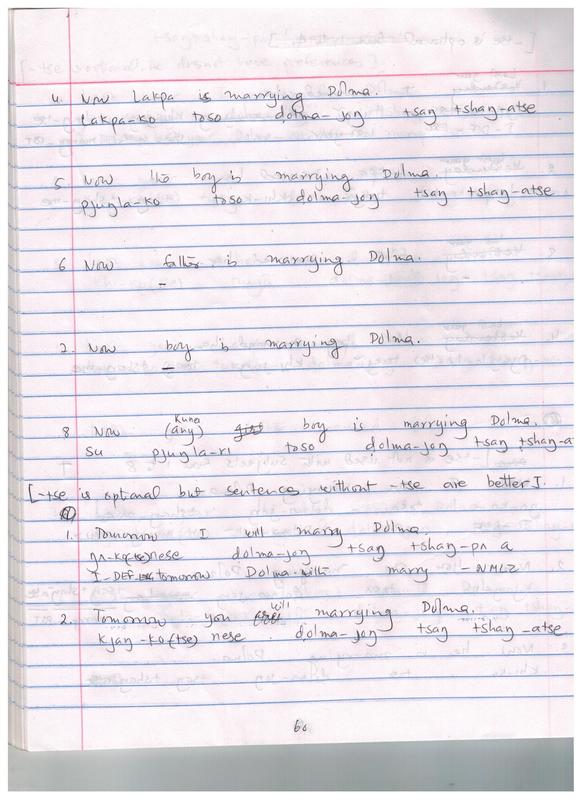 4. Now Lakpa is marrying Dolma.
Lakpa-ko toso dolma-joŋ tsaŋ tshaŋ-atse
5 Now the boy is marrying Dolma.
pjuŋla-ko toso dolma-joŋ tsaŋ tshaŋ-atse
6 Now father is marrying Dolma.
–
7. Now boy is marrying Dolma.
–
8 Now (any) boy is marrying Dolma.
su pjuŋla-ri toso dolma-joŋ tsaŋ tshaŋ-a
[-tse is optional but sentences without -tse are better].
1. Tomorrow I will marry Dolma.
ŋʌ-ko(tse) nese dolma-joŋ tsaŋ tshaŋ-pʌ a
I-DEF tomorrow Dolma-with marry -NMLZ
2. Tomorrow you will marrying Dolma.
kjaŋ-ko(tse) nese dolma-joŋ tsaŋ tshaŋ-atse
60